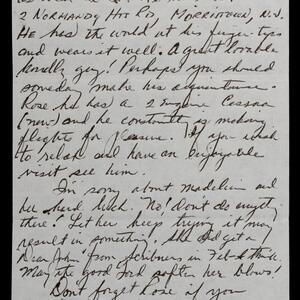 2 Normandy Hts Rd, Morristown, N.J.
He has the world at his finger-tips
and wears it well. A great lovable
family guy! Perhaps you should
someday make his acquaintance.
Rose he has a 2 Engine Cessna
(new) and he constantly is making
flights for pleasure. If you wish
to relax and have an enjoyable
visit see him.
I'm sorry about Madeline and
her hard luck. No! Don't do anything
there! Let her keep trying it may
result in something. She did get a
Dear John from Scribners in Feb I think.
May the good Lord soften her blows!
Don't forget Rose if you